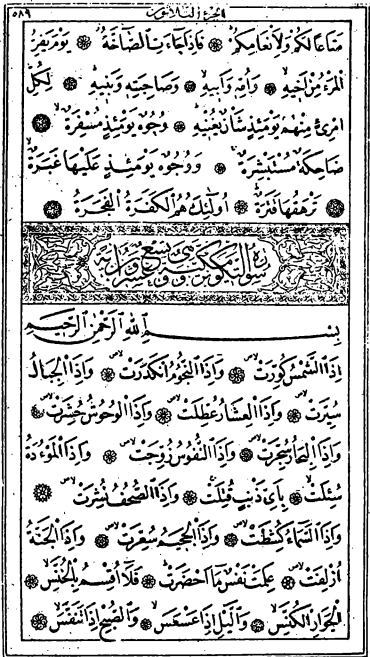 الجزء الثلاثون ٥٨٩
مَتَاعًا لَكُمْ وَلِاَنْعَامِكُمْ فَاِذَا جَاءَتِ الصَّاخَّةُ يَوْمَ يَفِرُّ
الْمَرْءُ مِنْ اَخِيهِ وَاُمِّهِ وَاَبِيهِ وَصَاحِبَتِهِ وَبَنِيهِ لِكُلِّ
امْرِئٍ مِنْهُمْ يَوْمَئِذٍ شَاْنٌ يُغْنِيهِ وُجُوهٌ يَوْمَئِذٍ مُسْفِرَةٌ
ضَاحِكَةٌ مُسْتَبْشِرَةٌ وَوُجُوهٌ يَوْمَئِذٍ عَلَيْهَا غَبَرَةٌ
تَرْهَقُهَا قَتَرَةٌ اُولٰئِكَ هُمُ الْكَفَرَةُ الْفَجَرَةُ
سورة التكوير مكية وهي تسع وعشرون آية
بِسْمِ اللهِ الرَّحْمٰنِ الرَّحِيمِ
اِذَا الشَّمْسُ كُوِّرَتْ وَاِذَا النُّجُومُ انْكَدَرَتْ وَاِذَا الْجِبَالُ
سُيِّرَتْ وَاِذَا الْعِشَارُ عُطِّلَتْ وَاِذَا الْوُحُوشُ حُشِرَتْ
وَاِذَا الْبِحَارُ سُجِّرَتْ وَاِذَا النُّفُوسُ زُوِّجَتْ وَاِذَا الْمَوْءُدَةُ
سُئِلَتْ بِاَيِّ ذَنْبٍ قُتِلَتْ وَاِذَا الصُّحُفُ نُشِرَتْ
وَاِذَا السَّمَاءُ كُشِطَتْ وَاِذَا الْجَحِيمُ سُعِّرَتْ وَاِذَا الْجَنَّةُ
اُزْلِفَتْ عَلِمَتْ نَفْسٌ مَا اَحْضَرَتْ فَلَا اُقْسِمُ بِالْخُنَّسِ
الْجَوَارِ الْكُنَّسِ وَالَّيْلِ اِذَا عَسْعَسَ وَالصُّبْحِ اِذَا تَنَفَّسَ